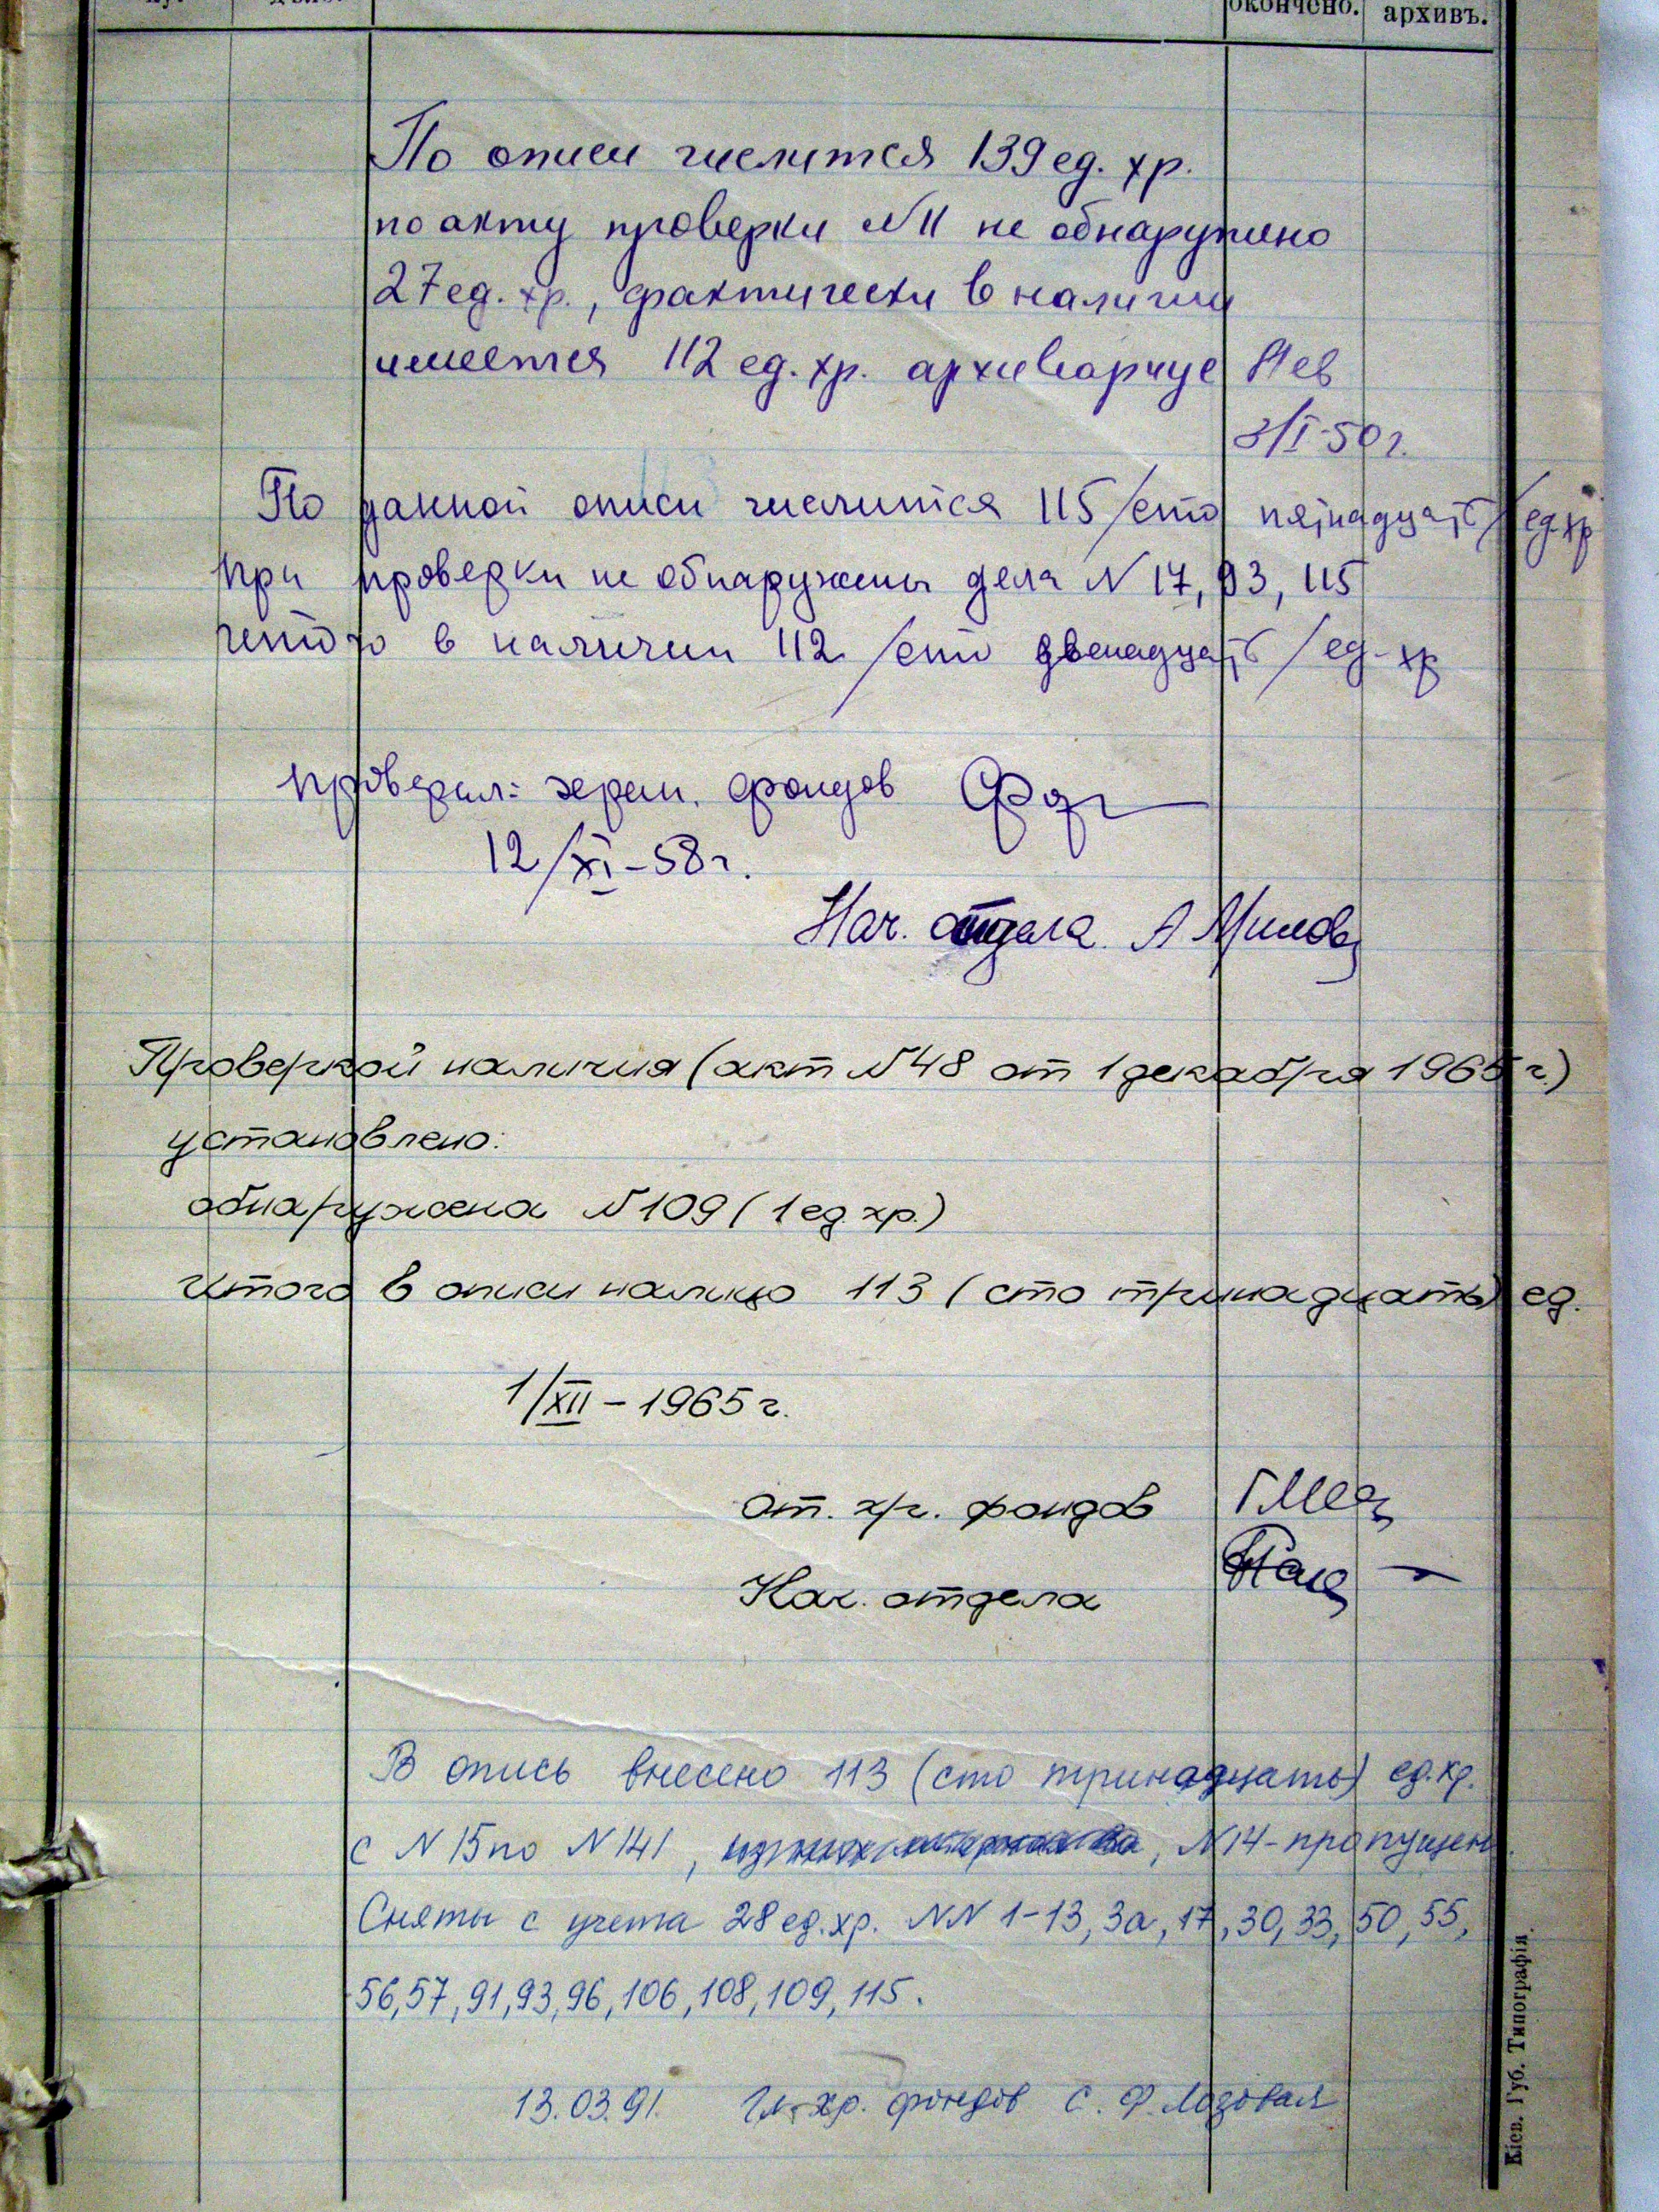 окончено. архивъ.
По описи числится 139 ед. хр.
по акту проверки №11 не обнаружено
27 ед. хр., фактически в наличии
имеется 112 ед. хр. архивариус
3/I-50 г.
По данной описи числится 115 /сто пятнадцать/ ед. хр
при проверки не обнаружены дела N 17, 93, 115
итого в наличии 112 /сто двенадцать/ ед-хр
проверил: хран. фондов
12/XI-58 г.
Нач. отдела А
Проверкой наличия (акт №48 от 1 декабря 1965 г.)
установлено:
обнаружена №109 (1 ед. хр.)
Итого в описи налицо 113 (сто тринадцать) ед.
1/XII-1965 г.
От. хр. фондов
Нач. отдела
В опись внесено 113 (сто тринадцать) ед. хр.
с N 15 по N 141, , N14-пропущен.
Сняты с учета 28 ед. хр. NN 1-13, 3а, 17, 30, 33, 50, 55,
56, 57, 91, 93, 96, 106, 108, 109, 115.
13.03.91. Гл. хр. фондов С. Ф. Лозовая
Кіев. Губ. Типографія.